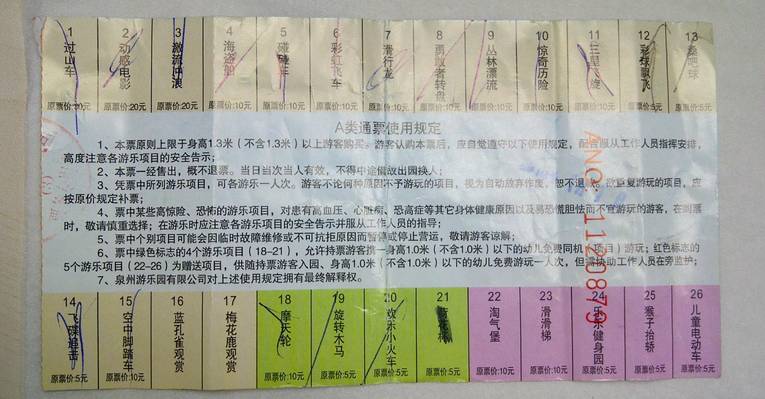 1 2 3 4 5 6 7 8 9 10 11 12 13
过山车 动感电影 激流冲浪 海盗船 碰碰车 彩虹飞车 滑行龙 勇敢者转盘 丛林漂流 惊奇历险 三星飞旋 彩球飘飞 桑吧球
原票价:20元 原票价:20元 原票价:20元 原票价:10元 原票价:10元 原票价:10元 原票价:10元 原票价:10元 原票价:10元 原票价:10元 原票价:10元 原票价:5元 原票价:5元
A类通票使用规定
1、本票原则上限于身高1.3米（不含1.3米）以上游客购买。游客认购本票后，应自觉遵守以下使用规定，配合服从工作人员指挥安排，
高度注意各游乐项目的安全告示；
2、本票一经售出，概不退票。当日当次当人有效，不得中途借故出园换人；
3、凭票中所列游乐项目，可各游乐一人次。游客不论何种原因不予游玩的项目，视为自动放弃作废，恕不退票。欲重复游玩的项目，应
按原价规定补票；
4、票中某些高惊险、恐怖的游乐项目，对患有高血压、心脏病、恐高症等其它身体健康原因以及易恐慌胆怯而不宜游玩的游客，在剪票
时，敬请慎重选择；在游乐时应注意各游乐项目的安全告示并服从工作人员的指导；
5、票中个别项目可能会因临时故障维修或不可抗拒原因而暂停或停止营运，敬请游客谅解；
6、票中绿色标志的4个游乐项目（18-21），允许持票游客携一身高1.0米（不含1.0米）以下的幼儿免费同机（项目）游玩；红色标志的
5个游乐项目（22-26）为赠送项目，供随持票游客入园、身高1.0米（不含1.0米）以下的幼儿免费游玩一人次，但需协助工作人员在旁监护；
7、泉州游乐园有限公司对上述使用规定拥有最终解释权。
ANO 1120879
14 15 16 17 18 19 20 21 22 23 24 25 26
飞碟追击 空中脚踏车 蓝孔雀观赏 梅花鹿观赏 摩天轮 旋转木马 欢乐小火车 淘气堡 滑滑梯 乐乐健身园 猴子抬轿 儿童电动车
原票价:5元 原票价:10元 原票价:5元 原票价:5元 原票价:10元 原票价:5元 原票价:5元 原票价:5元 原票价:10元 原票价:10元 原票价:10元 原票价:5元 原票价:5元